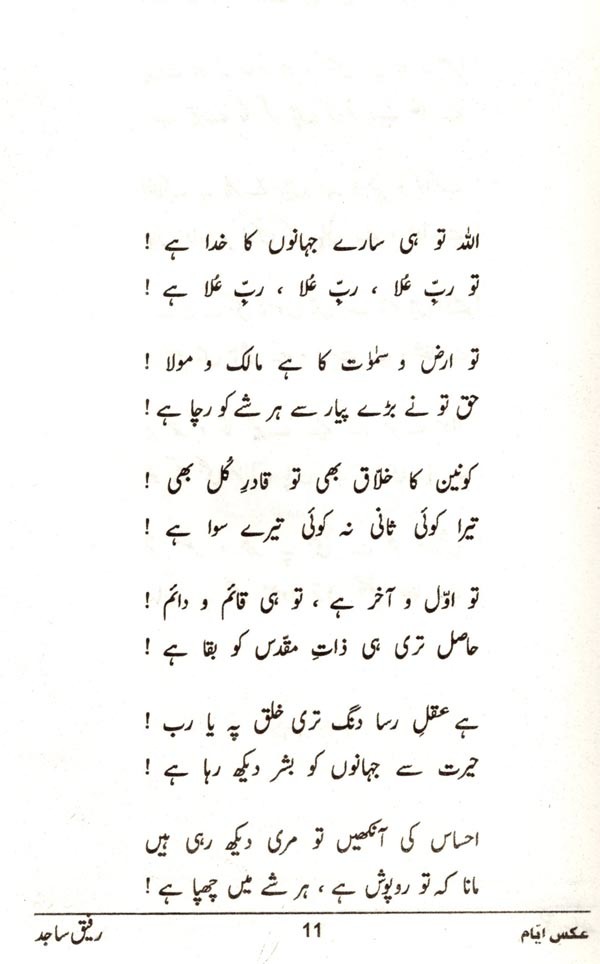 اللہ تو ہی سارے جہانوں کا خدا ہے !
تو ربِّ عُلا ، ربِّ عُلا ، ربِّ عُلا ہے !
تو ارض و سمٰوٰت کا ہے مالک و مولا !
حق تو نے بڑے پیار سے ہر شے کو رچا ہے !
کونین کا خلّاق بھی تو قادرِ کُل بھی !
تیرا کوئی ثانی نہ کوئی تیرے سوا ہے !
تو اوّل و آخر ہے ، تو ہی قائم و دائم !
حاصل تری ہی ذاتِ مقدّس کو بقا ہے !
ہے عقلِ رسا دنگ تری خلق پہ یا رب !
حیرت سے جہانوں کو بشر دیکھ رہا ہے !
احساس کی آنکھیں تو مری دیکھ رہی ہیں
مانا کہ تو روپوش ہے ، ہر شے میں چھپا ہے !
عکس ایّام 11 رفیق ساجد